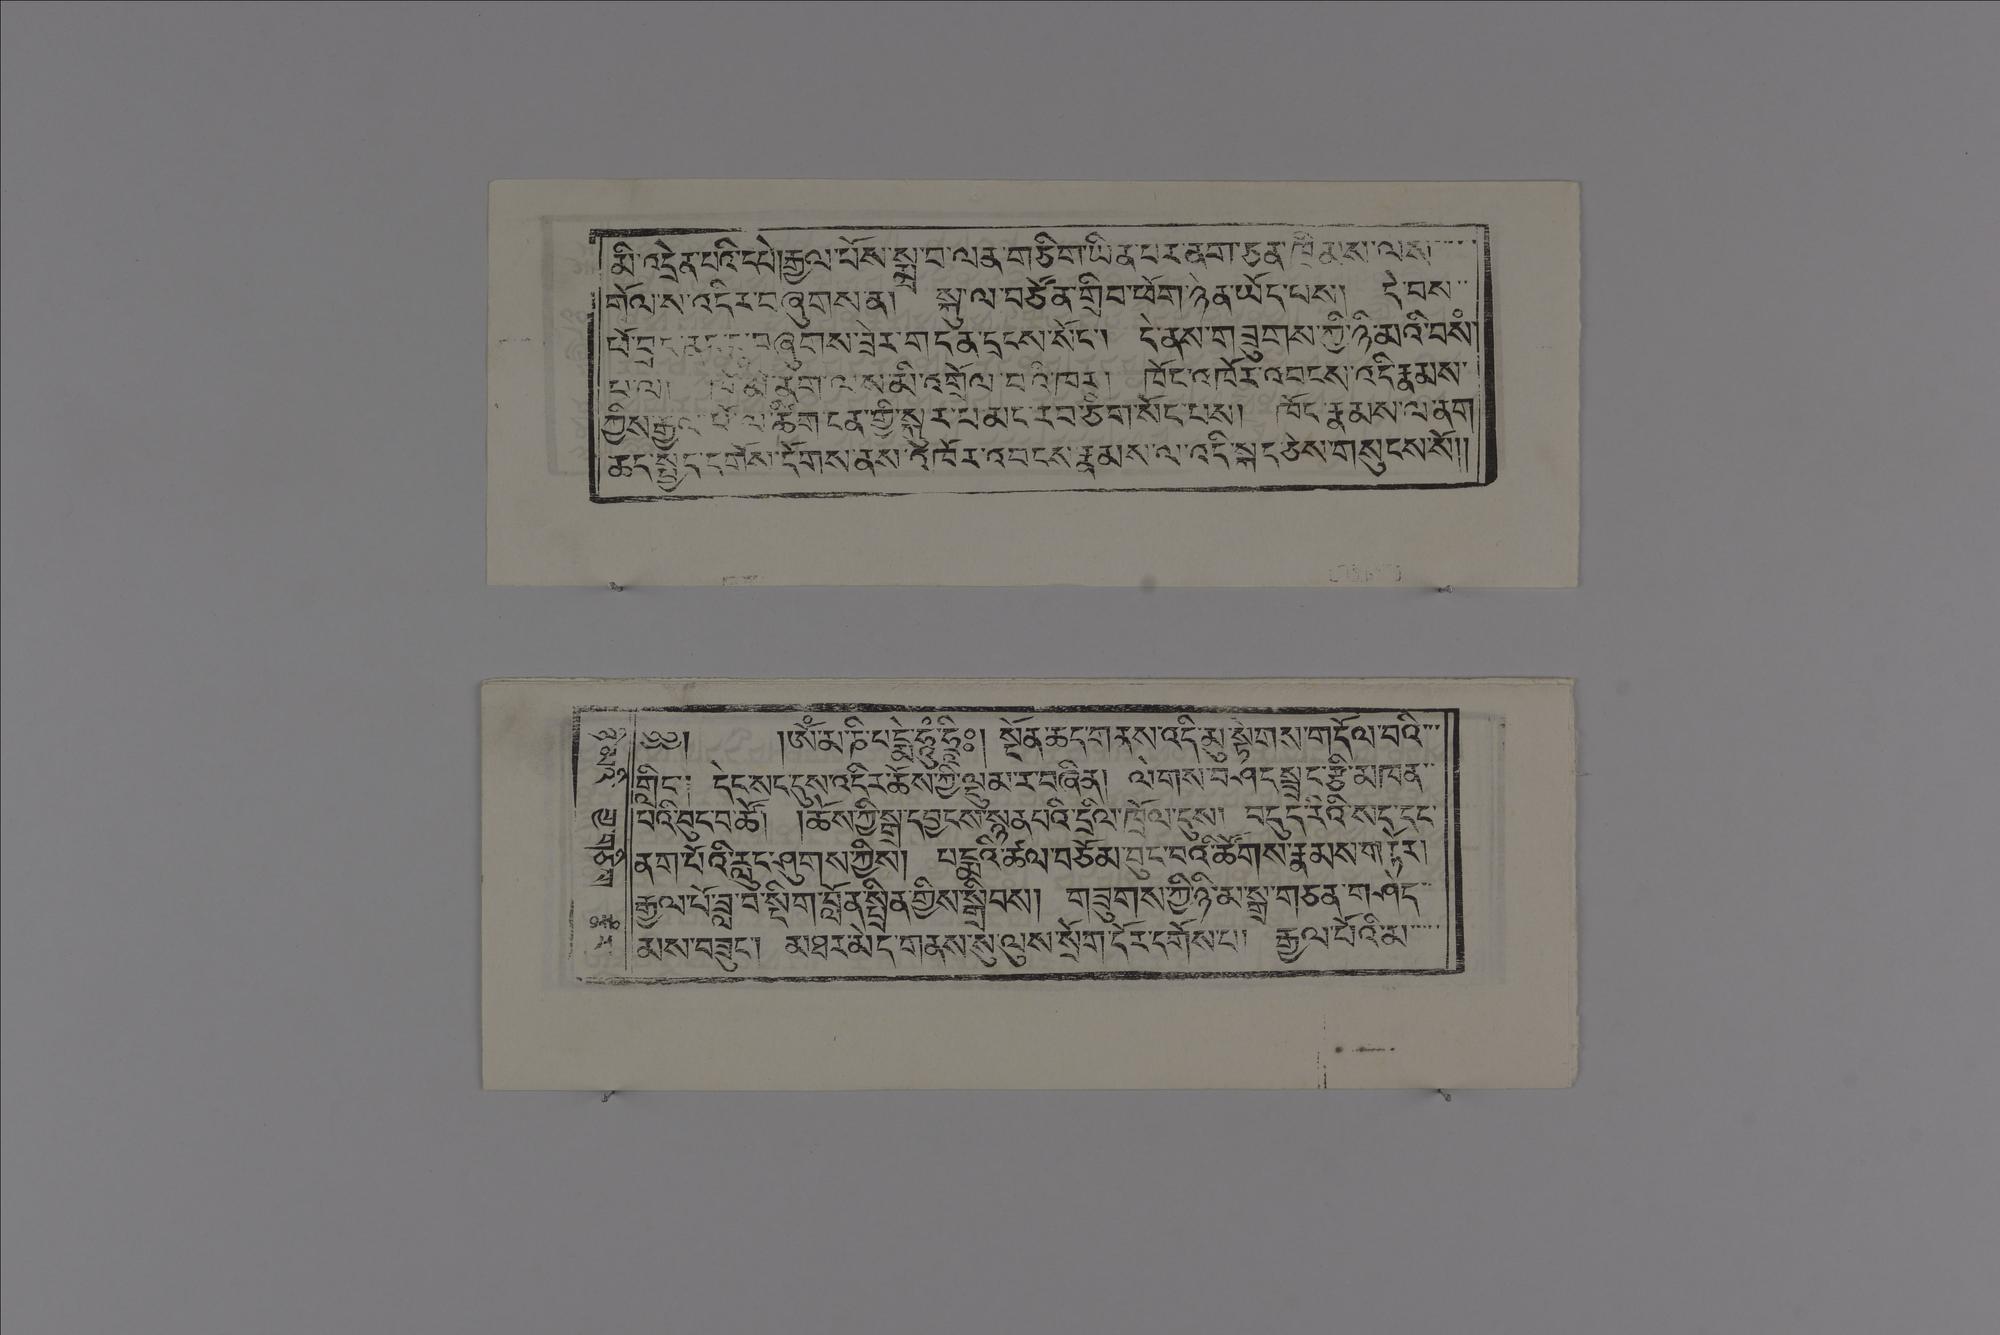 མི་འདྲེན་པའི་དཔེ། རྒྱལ་པོས་སླྲ་བ་ལན་གཅིག་ཡིན་པར་ནག་ཅན་ཁྲིམས་ལས།
གོལ་ས་འདིར་བཞུགས་ན། སྐུ་ལ་བཙོན་གྲིབ་ཕོག་ཉེན་ཡོད་པས། དེ་བས
ཕོ་བྲང་ བཞུགས་ཟེར་གདན་དྲངས་སོང་། དེ་ནས་གཟུགས་ཀྱི་ཉི་མའི་བསཾ་
པ་ལ། མི་འགྲོལ་བའི་ཁར། ཁོང་འཁོར་འབངས་འདི་རྣམས་
ཀྱིས་རྒྱལ་པོ་ལ་ཚིག་ངན་གྱི་སྐར་པ་མང་རབ་ཅིག་སོང་པས། ཁོང་རྣམས་ལ་ནག
ཆད་སྤྱད་དགོས་དགོས་ནས་ཏེ་ཁོར་འབངས་རྣམས་ལ་འདི་སྐད་ཅེས་གསུངས་སོ།།
༄༅། །ཨོཾ་མ་ཎི་པདྨེ་ཧཱུྃ་ཧྲཱིཿ། སྔོན་ཆད་གནས་འདི་མུ་སྟེགས་གདོལ་བའི
གླིང་། དེང་སང་དུས་འདིར་ཆོས་ཀྱི་ལྡུམ་ར་བཞིན། ལེགས་བཤད་སྦྲང་རྩི་མཁན
པའི་བུང་བ་ཚོ། །ཆོས་ཀྱི་སྒྲ་དབྱངས་སྙན་པའི་དྲིལ་ཁྲོལ་དུས། བདུད་རིའི་སད་དང་
ནག་པོའི་རླུང་ཤུགས་ཀྱིས། པདྨའི་ཚལ་བཅོམ་བུང་བའི་ཚོགས་རྣམས་གཏོར།
རྒྱལ་པོ་ཟླ་བ་སྡིག་བློན་སྤྲིན་གྱིས་སྒྲིབས། གཟུགས་ཀྱི་ཉི་མ་སྒྲ་གཅན་གཤེད
མས་བཟུང་། མཐར་མེད་གནས་སུ་ལུས་སྲོག་དོར་དགོས་པ། རྒྱལ་པོའི་མ